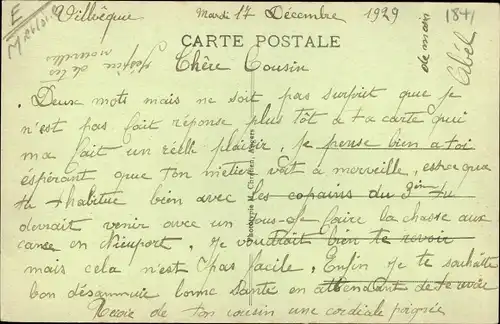 Villvêque Mardi 17 Décembre 1929 1841
CARTE POSTALE
Chère Cousin
J'éspère de tes nouvelles
de main
Abél
Deux mots mais ne soit pas surprit que je
n'est pas fait réponse plus tôt à ta carte qui
ma fait un réelle plaisir, je pense bien a toi
éspérant que ton metier vat à merveille, est ce que
tu t habitue bien avec les copains du 3ème tu
devrait venir avec un sous-je faire la chasse aux
en Nieuport, je voudrait bien te revoir
mais cela n'est pas facile. Enfin je te souhaitte
bon désannuie bonne Santé en attendant de te revoir
Recoie de ton cousin une cordiale poignée